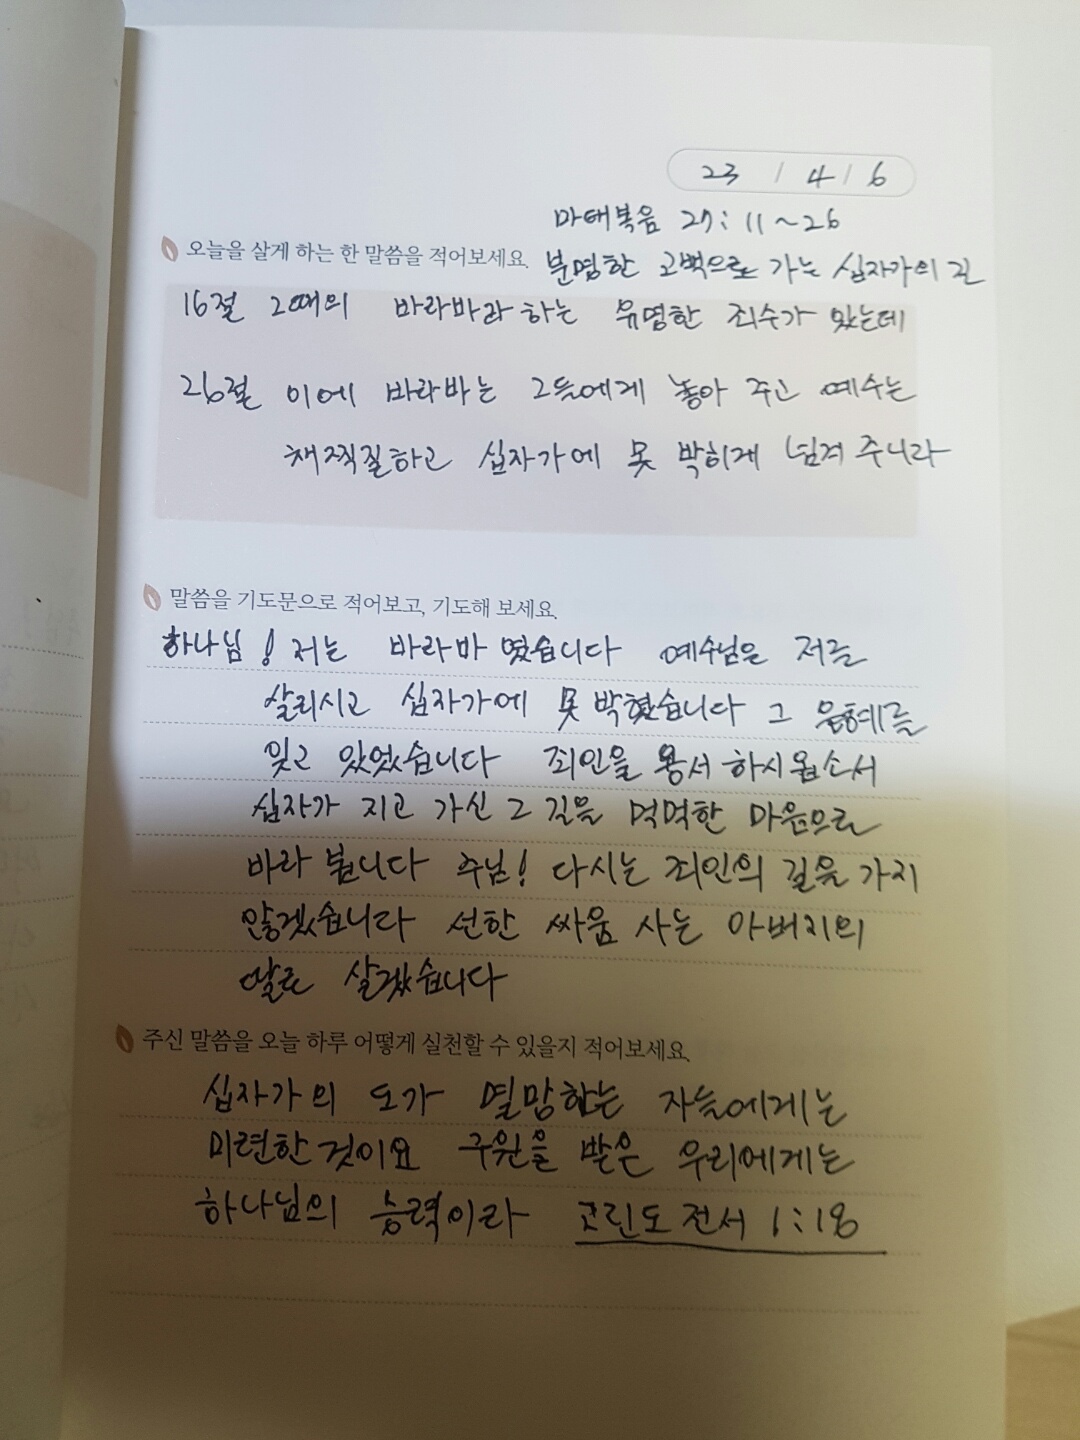 23 / 4 / 6
마태복음 27:11~26
오늘을 살게 하는 한 말씀을 적어보세요.
분명한 고백으로 가는 십자가의 길
16절 그때의 바라바라 하는 유명한 죄수가 있는데
26절 이에 바라바는 그들에게 놓아 주고 예수는
채찍질하고 십자가에 못 박히게 넘겨 주니라
말씀을 기도문으로 적어보고, 기도해 보세요.
하나님! 저는 바라바 였습니다 예수님은 저를
살리시고 십자가에 못 박혔습니다 그 은혜를
잊고 있었습니다 죄인을 용서 하시옵소서
십자가 지고 가신 그 길을 먹먹한 마음으로
바라 봅니다 주님! 다시는 죄인의 길을 가지
않겠습니다 선한 싸움 사는 아버지의
딸로 살겠습니다
주신 말씀을 오늘 하루 어떻게 실천할 수 있을지 적어보세요.
십자가의 도가 멸망하는 자들에게는
미련한 것이요 구원을 받은 우리에게는
하나님의 능력이라 고린도전서 1:18